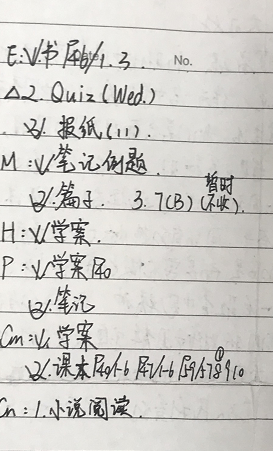 No.
E: 1. 书 P46/1.3
△2. Quiz (Wed.)
3. 报纸 (11).
M: 1. 笔记例题
暂时
2. 篇子. 3.7(B) (不收).
H: 1. 学案.
P: 1. 学案 P40
2. 笔记
Cm: 1. 学案
2. 课本 P40/1-6 P47/1-6 P59/5 7 8 9 10
Cn: 1. 小说阅读.